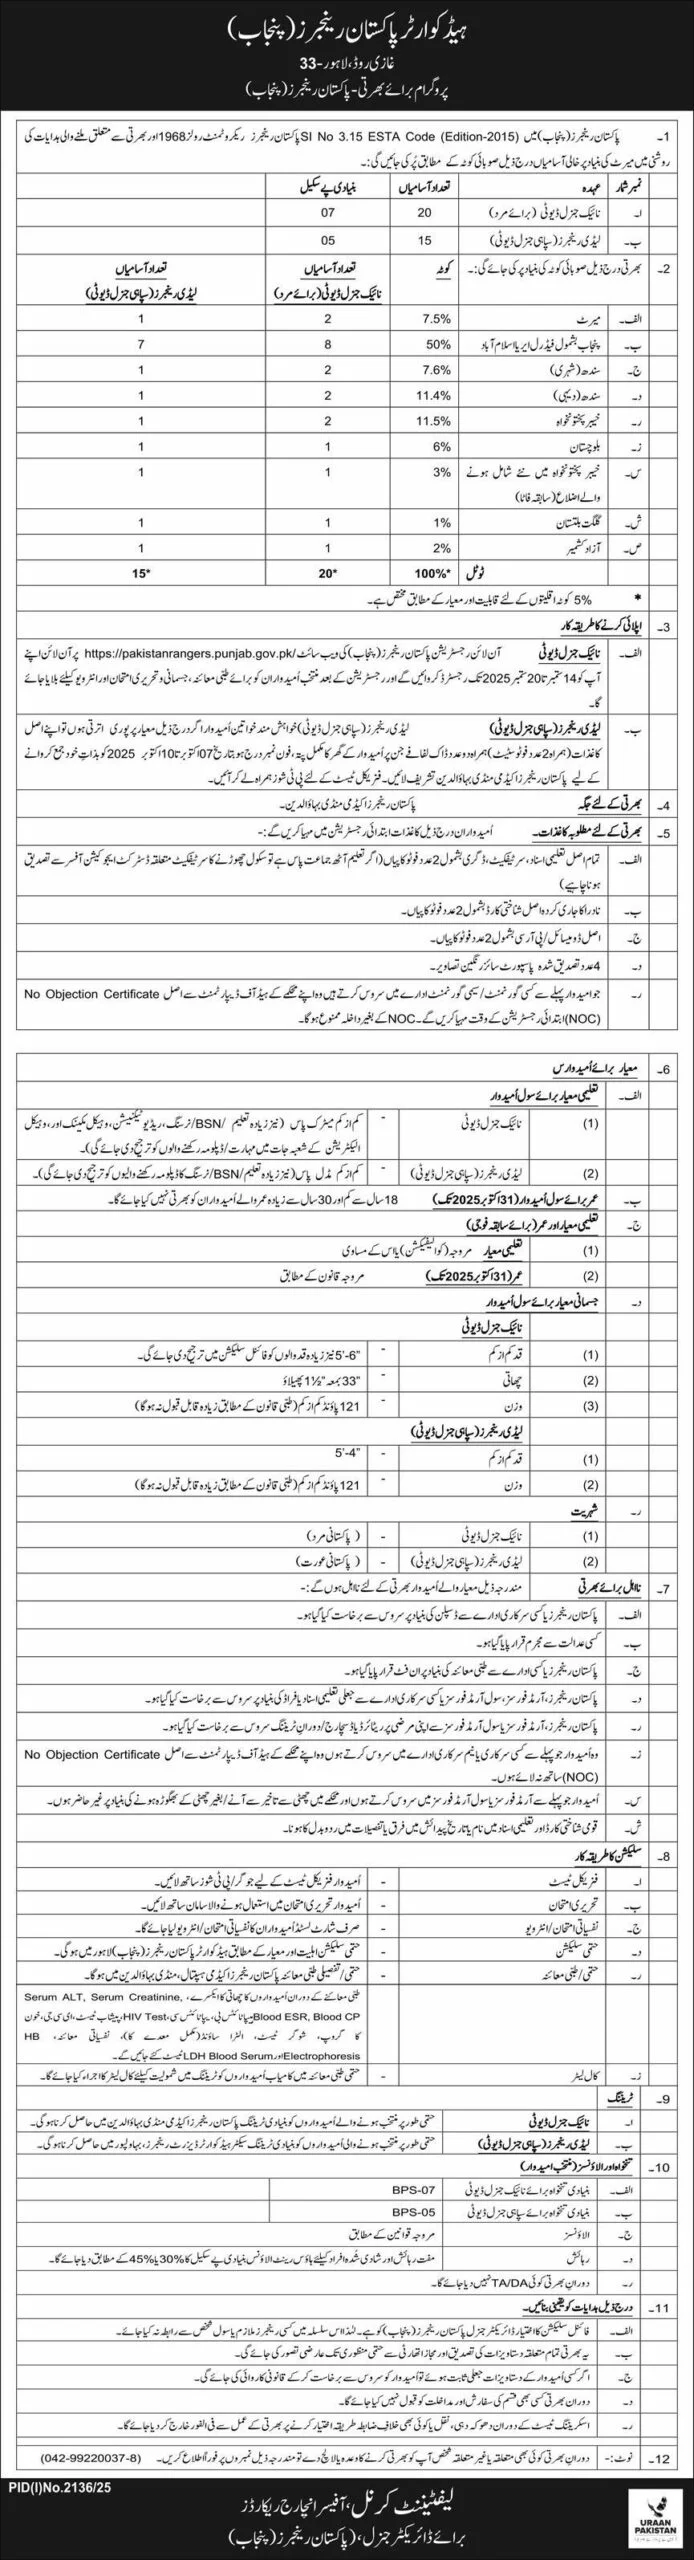 ہیڈ کوارٹر پاکستان رینجرز (پنجاب)
غازی روڈ، لاہور-33
پروگرام برائے بھرتی - پاکستان رینجرز (پنجاب)
1۔ پاکستان رینجرز (پنجاب) میں SI No 3.15 ESTA Code (Edition-2015) پاکستان رینجرز ریکروٹمنٹ رولز 1968 اور بھرتی سے متعلق ملنے والی ہدایات کی
روشنی میں میرٹ کی بنیاد پر خالی آسامیاں درج ذیل صوبائی کوٹہ کے مطابق پُر کی جائیں گی:۔
نمبر شمار عہدہ تعداد آسامیاں بنیادی پے سکیل
ا۔ نائیک جنرل ڈیوٹی (برائے مرد) 20 07
ب۔ لیڈی رینجرز (سپاہی جنرل ڈیوٹی) 15 05
2۔ بھرتی درج ذیل صوبائی کوٹہ کی بنیاد پر کی جائے گی:۔ کوٹہ تعداد آسامیاں تعداد آسامیاں
نائیک جنرل ڈیوٹی (برائے مرد) لیڈی رینجرز (سپاہی جنرل ڈیوٹی)
الف۔ میرٹ 7.5% 2 1
ب۔ پنجاب بشمول فیڈرل ایریا اسلام آباد 50% 8 7
ج۔ سندھ (شہری) 7.6% 2 1
د۔ سندھ (دیہی) 11.4% 2 1
ر۔ خیبر پختونخواہ 11.5% 2 1
ز۔ بلوچستان 6% 1 1
س۔ خیبر پختونخواہ میں نئے شامل ہونے 3% 1 1
والے اضلاع (سابقہ فاٹا)
ش۔ گلگت بلتستان 1% 1 1
ص۔ آزاد کشمیر 2% 1 1
ٹوٹل 100%* 20* 15*
* 5% کوٹہ اقلیتوں کے لئے قابلیت اور معیار کے مطابق مختص ہے۔
3۔ اپلائی کرنے کا طریقہ کار
الف۔ نائیک جنرل ڈیوٹی آن لائن رجسٹریشن پاکستان رینجرز (پنجاب) کی ویب سائٹ https://pakistanrangers.punjab.gov.pk/ پر آن لائن اپنے
آپ کو 14 ستمبر تا 20 ستمبر 2025 تک رجسٹرڈ کروائیں گے اور رجسٹریشن کے بعد منتخب اُمیدواران کو برائے طبّی معائنہ، جسمانی و تحریری امتحان اور انٹرویو کیلئے بلایا جائے
گا۔
ب۔ لیڈی رینجرز (سپاہی جنرل ڈیوٹی) لیڈی رینجرز (سپاہی جنرل ڈیوٹی) خواہش مند خواتین اُمیدوار اگر درج ذیل معیار پر پوری اترتی ہوں تو اپنے اصل
کاغذات (ہمراہ 2 عدد فوٹوسٹیٹ) ہمراہ دو عدد ڈاک لفافے جن پر اُمیدوار کے گھر کا مکمل پتہ، فون نمبر درج ہو بتاریخ 07 اکتوبر تا 10 اکتوبر 2025 کو بذات خود جمع کروانے
کے لیے پاکستان رینجرز اکیڈمی منڈی بہاؤالدین تشریف لائیں۔ فزیکل ٹیسٹ کے لئے پی ٹی شوز ہمراہ لے کر آئیں۔
4۔ بھرتی کے لئے جگہ پاکستان رینجرز اکیڈمی منڈی بہاؤالدین۔
5۔ بھرتی کے لئے مطلوبہ کاغذات۔ اُمیدواران درج ذیل کاغذات ابتدائی رجسٹریشن میں مہیا کریں گے:-
الف۔ تمام اصل تعلیمی اسناد، سرٹیفکیٹ، ڈگری بشمول 2 عدد فوٹو کاپیاں (اگر تعلیم آٹھ جماعت پاس ہے تو سکول چھوڑنے کا سرٹیفکیٹ متعلقہ ڈسٹرکٹ ایجوکیشن آفسر سے تصدیق
ہونا چاہیے)
ب۔ نادرا کا جاری کردہ اصل شناختی کارڈ بشمول 2 عدد فوٹو کاپیاں۔
ج۔ اصل ڈومیسائل / پی آر سی بشمول 2 عدد فوٹو کاپیاں۔
د۔ 4 عدد تصدیق شدہ پاسپورٹ سائز رنگین تصاویر۔
ر۔ جو اُمیدوار پہلے سے کسی گورنمنٹ / سیمی گورنمنٹ ادارے میں سروس کرتے ہیں وہ اپنے محکمے کے ہیڈ آف ڈیپارٹمنٹ سے اصل No Objection Certificate
(NOC) ابتدائی رجسٹریشن کے وقت مہیا کریں گے۔ NOC کے بغیر داخلہ ممنوع ہوگا۔
6۔ معیار برائے اُمیدوارس
الف۔ تعلیمی معیار برائے سول اُمیدوار
(1) نائیک جنرل ڈیوٹی - کم از کم میٹرک پاس (نیز زیادہ تعلیم /BSN/ نرسنگ، ریڈیو ٹیکنیشن، وہیکل مکینک اور، وہیکل
الیکٹریشن کے شعبہ جات میں مہارت / ڈپلومہ رکھنے والوں کو ترجیح دی جائے گی)۔
(2) لیڈی رینجرز (سپاہی جنرل ڈیوٹی) - کم از کم مڈل پاس (نیز زیادہ تعلیم /BSN/ نرسنگ کا ڈپلومہ رکھنے والیوں کو ترجیح دی جائے گی)۔
ب۔ عمر برائے سول اُمیدوار (31 اکتوبر 2025 تک) 18 سال سے کم اور 30 سال سے زیادہ عمر والے اُمیدواران کو بھرتی نہیں کیا جائے گا۔
ج۔ تعلیمی معیار اور عمر (برائے سابقہ فوجی)
(1) تعلیمی معیار مروجہ (کوالیفکیشن) یا اس کے مساوی
(2) عمر (31 اکتوبر 2025 تک) مروجہ قانون کے مطابق
د۔ جسمانی معیار برائے سول اُمیدوار
نائیک جنرل ڈیوٹی
(1) قد کم از کم - 5'-6" نیز زیادہ قد والوں کو فائنل سلیکشن میں ترجیح دی جائے گی۔
(2) چھاتی - 33" بمعہ 1½" پھیلاؤ
(3) وزن - 121 پاؤنڈ کم از کم (طبّی قانون کے مطابق زیادہ قابل قبول نہ ہوگا)
لیڈی رینجرز (سپاہی جنرل ڈیوٹی)
(1) قد کم از کم - 5'-4"
(2) وزن - 121 پاؤنڈ کم از کم (طبّی قانون کے مطابق زیادہ قابل قبول نہ ہوگا)
ر۔ شہریت
(1) نائیک جنرل ڈیوٹی - (پاکستانی مرد)
(2) لیڈی رینجرز (سپاہی جنرل ڈیوٹی) - (پاکستانی عورت)
7۔ نااہل برائے بھرتی مندرجہ ذیل معیار والے اُمیدوار بھرتی کے لئے نااہل ہوں گے:-
الف۔ پاکستان رینجرز یا کسی سرکاری ادارے سے ڈسپلن کی بنیاد پر سروس سے برخاست کیا گیا ہو۔
ب۔ کسی عدالت سے مجرم قرار پایا گیا ہو۔
ج۔ پاکستان رینجرز یا کسی ادارے سے طبّی معائنہ کی بنیاد پر ان فٹ قرار پایا گیا ہو۔
د۔ پاکستان رینجرز، آرمڈ فورسز، سول آرمڈ فورسز یا کسی سرکاری ادارے سے جعلی تعلیمی اسناد یا فراڈ کی بنیاد پر سروس سے برخاست کیا گیا ہو۔
ر۔ پاکستان رینجرز، آرمڈ فورسز یا سول آرمڈ فورسز سے اپنی مرضی پر ریٹائرڈ یا ڈسچارج / دوران ٹریننگ سروس سے برخاست کیا گیا ہو۔
ز۔ وہ اُمیدوار جو پہلے سے کسی سرکاری یا نیم سرکاری ادارے میں سروس کرتے ہوں وہ اپنے محکمے کے ہیڈ آف ڈیپارٹمنٹ سے اصل No Objection Certificate
(NOC) ساتھ نہ لائے ہوں۔
س۔ اُمیدوار جو پہلے سے آرمڈ فورسز یا سول آرمڈ فورسز میں سروس کرتے ہوں اور محکمے میں چھٹی سے تاخیر سے آنے / بغیر چھٹی کے بھگوڑہ ہونے کی بنیاد پر غیر حاضر ہوں۔
ش۔ قومی شناختی کارڈ اور تعلیمی اسناد میں نام یا تاریخ پیدائش میں فرق یا تفصیلات میں ردوبدل کا ہونا۔
8۔ سلیکشن کا طریقہ کار
ا۔ فزیکل ٹیسٹ - اُمیدوار فزیکل ٹیسٹ کے لیے جوگر / پی ٹی شوز ساتھ لائیں۔
ب۔ تحریری امتحان - اُمیدوار تحریری امتحان میں استعمال ہونے والا سامان ساتھ لائیں۔
ج۔ نفسیاتی امتحان / انٹرویو - صرف شارٹ لسٹڈ اُمیدواران کا نفسیاتی امتحان / انٹرویو لیا جائے گا۔
د۔ حتمی سلیکشن - حتمی سلیکشن اہلیت اور معیار کے مطابق ہیڈ کوارٹر پاکستان رینجرز (پنجاب) لاہور میں ہوگی۔
ر۔ حتمی / طبّی معائنہ - حتمی / تفصیلی طبّی معائنہ پاکستان رینجرز اکیڈمی ہسپتال، منڈی بہاؤالدین میں ہوگا۔
طبّی معائنے کے دوران اُمیدواروں کا چھاتی کا ایکسرے، Serum ALT, Serum Creatinine,
Blood ESR, Blood CP ہیپاٹائٹس بی، ہیپاٹائٹس سی، HIV Test، پیشاب ٹیسٹ، ای سی جی، خون
کا گروپ، شوگر ٹیسٹ، الٹرا ساؤنڈ (مکمل معدے کا)، نفسیاتی معائنہ، HB
Electrophoresis اور LDH Blood Serum ٹیسٹ کئے جائیں گے۔
ز۔ کال لیٹر - حتمی طبّی معائنہ میں کامیاب اُمیدواروں کو ٹریننگ میں شمولیت کیلئے کال لیٹر کا اجراء کیا جائے گا۔
9۔ ٹریننگ
ا۔ نائیک جنرل ڈیوٹی حتمی طور پر منتخب ہونے والے اُمیدواروں کو بنیادی ٹریننگ پاکستان رینجرز اکیڈمی منڈی بہاؤالدین میں حاصل کرنا ہوگی۔
ب۔ لیڈی رینجرز (سپاہی جنرل ڈیوٹی) حتمی طور پر منتخب ہونے والی اُمیدواروں کو بنیادی ٹریننگ سیکٹر ہیڈ کوارٹر ڈیزرٹ رینجرز، بہاولپور میں حاصل کرنا ہوگی۔
10۔ تنخواہ اور الاؤنسز (منتخب امیدوار)
الف۔ بنیادی تنخواہ برائے نائیک جنرل ڈیوٹی BPS-07
ب۔ بنیادی تنخواہ برائے سپاہی جنرل ڈیوٹی BPS-05
ج۔ الاؤنسز مروجہ قوانین کے مطابق
د۔ رہائش مفت رہائش اور شادی شدہ افراد کیلئے ہاؤس رینٹ الاؤنس بنیادی پے سکیل کا 30% یا 45% کے مطابق دیا جائے گا۔
ر۔ دوران بھرتی کوئی TA/DA نہیں دیا جائے گا۔
11۔ درج ذیل ہدایات کو یقینی بنائیں۔
الف۔ فائنل سلیکشن کا اختیار ڈائریکٹر جنرل پاکستان رینجرز (پنجاب) کو ہے۔ لہٰذا اس سلسلہ میں کسی رینجرز ملازم یا سول شخص سے رابطہ نہ کیا جائے۔
ب۔ یہ بھرتی تمام متعلقہ دستاویزات کی تصدیق اور مجاز اتھارٹی سے حتمی منظوری تک عارضی تصور کی جائے گی۔
ج۔ اگر کسی اُمیدوار کے دستاویزات جعلی ثابت ہوئے تو اُمیدوار کو سروس سے برخاست کر کے قانونی کاروائی کی جائے گی۔
د۔ دوران بھرتی کسی بھی قسم کی سفارش اور مداخلت کو قبول نہیں کیا جائے گا۔
ر۔ اسکریننگ ٹیسٹ کے دوران دھوکہ دہی، نقل یا کوئی بھی خلاف ضابطہ طریقہ اختیار کرنے پر بھرتی کے عمل سے فی الفور خارج کر دیا جائے گا۔
12۔ نوٹ:- دوران بھرتی کوئی بھی متعلقہ یا غیر متعلقہ شخص آپ کو بھرتی کرنے کا وعدہ یا لالچ دے تو مندرجہ ذیل نمبروں پر فوراً اطلاع کریں۔ (042-99220037-8)
PID(I)No.2136/25
لیفٹیننٹ کرنل، آفیسر انچارج ریکارڈز
برائے ڈائریکٹر جنرل، (پاکستان رینجرز (پنجاب)
URAAN
PAKISTAN